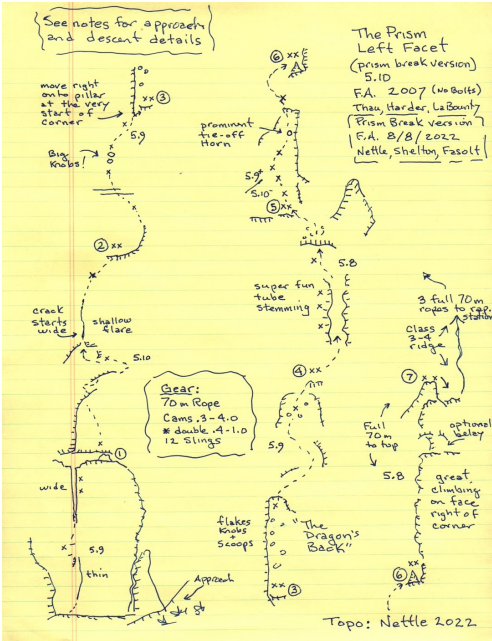 See notes for approach
and descent details
The Prism
Left Facet
(prism break version)
5.10
F.A. 2007 (No Bolts)
Thau, Harder, LaBounty
Prism Break version
F.A. 8/8/2022
Nettle, Shelton, Fasolt
move right
onto pillar
at the very
start of
corner
xx ③
5.9
Big
Knobs!
② xx
crack
starts
wide
shallow
flare
5.10
①
wide
5.9
thin
Approach
Gear:
70m Rope
Cams .3-4.0
* double .4-1.0
12 Slings
⑥ xx
prominent
tie-off
Horn
5.9+
5.10-
⑤ xx
5.8
super fun
tube
stemming
④ xx
5.9
flakes
Knobs
+
Scoops
"The
Dragon's
Back"
xx
③
3 full 70m
ropes to rap.
station
Class
3-4
ridge
⑦
xx
Full
70m
to top
optional
belay
5.8
great
climbing
on face
right of
corner
⑥ xx
Topo: Nettle 2022